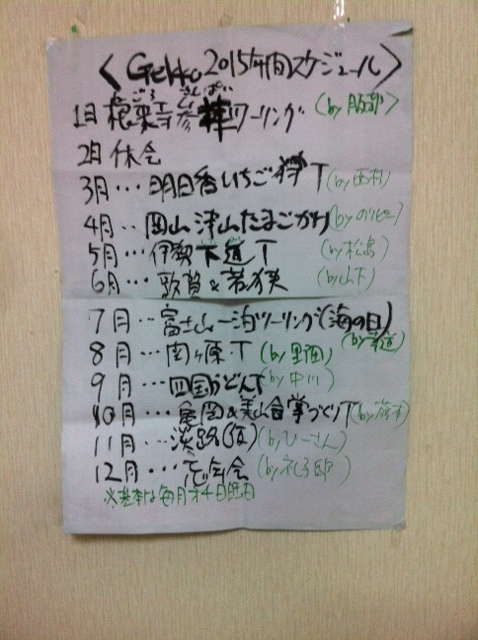 〈Gekko2015年間スケジュール〉
ごろ さんぱい
1月 根来寺参拝ツーリング (by 服部)
2月 休会
3月…明日香いちご狩T (by 西村)
4月‥岡山津山たまごかけ (by のりピー)
5月…伊勢下道T (by 松島)
6月…敦賀&若狭 (by 山下)
7月‥富士山一泊ツーリング(海の日)
8月‥関ヶ原T (by 里西)
9月…四国うどんT (by 中川)
10月…亀岡&美山合掌づくりT
11月…淡路(仮) (by ひーさん)
12月…忘年会
※基本は毎月才4日曜日